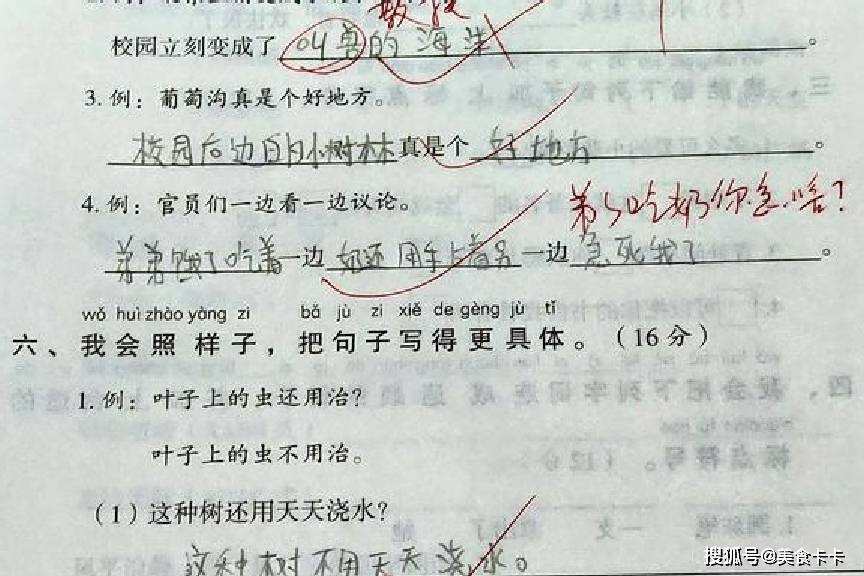 校园立刻变成了 叫兽的海洋。
3.例：葡萄沟真是个好地方。
校园后边的小树林真是个 好地方。
4.例：官员们一边看一边议论。
弟弟吃奶你急啥？
弟弟饿了吃着一边 奶还用手占着另一边 急死我了。
wǒ huì zhào yàng zi bǎ jù zi xiě de gèng jù tǐ
六、我会照样子，把句子写得更具体。（16分）
1.例：叶子上的虫还用治？
叶子上的虫不用治。
（1）这种树还用天天浇水？
这种树不用天天浇水。
搜狐号@美食卡卡